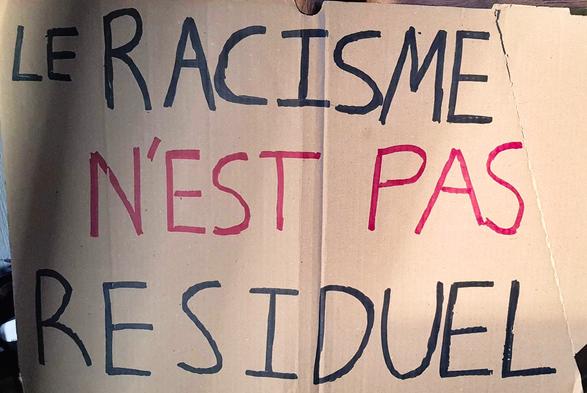 LE RACISME
N'EST PAS
RESIDUEL